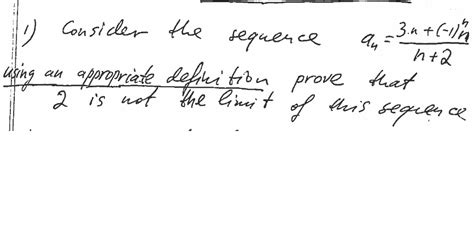 1) Consider the sequence aₙ = (3·n + (-1)ⁿn)/(n+2)
using an appropriate definition prove that
2 is not the limit of this sequence